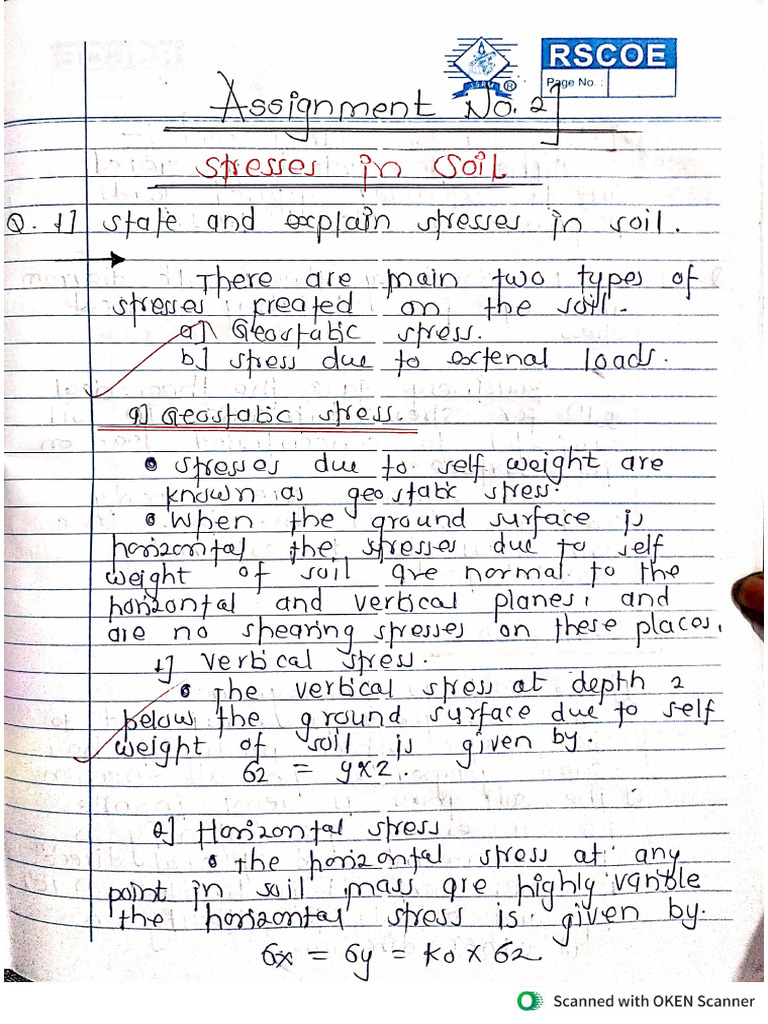 RSCOE
Page No. :
Assignment No. 2]
Stresses in Soil
Q. 1] state and explain stresses in soil.
There are main two types of
stresses created on the soil.
a] Geostatic stress.
b] stress due to extenal loads.
a] Geostatic stress.
• stresses due to self weight are
known as geostatic stress.
• When the ground surface is
horizontal the stresses due to self
weight of soil are normal to the
horizontal and vertical planes, and
are no shearing stresses on these places.
1] Vertical stress.
• The vertical stress at depth z
below the ground surface due to self
weight of soil is given by.
σz = γ×z.
2] Horizontal stress
• the horizontal stress at any
point in soil mass are highly varible
the horizontal stress is given by.
σx = σy = ko × σz
Scanned with OKEN Scanner